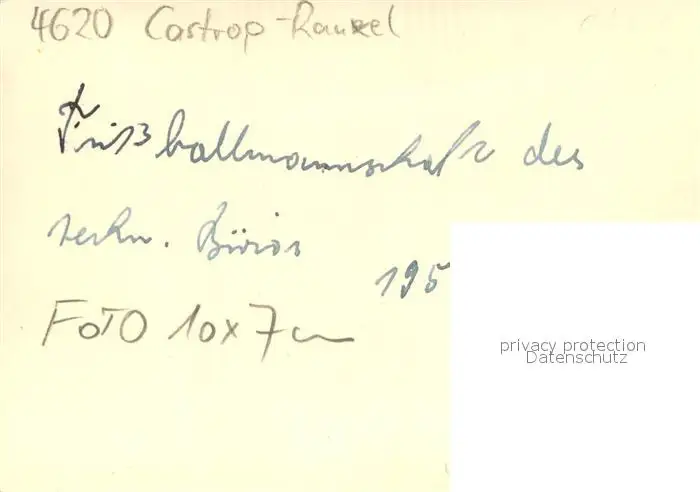 4620 Castrop-Rauxel
Fußballmannschaft des
techn. Büros
195
FOTO 10x7cm
privacy protection
Datenschutz